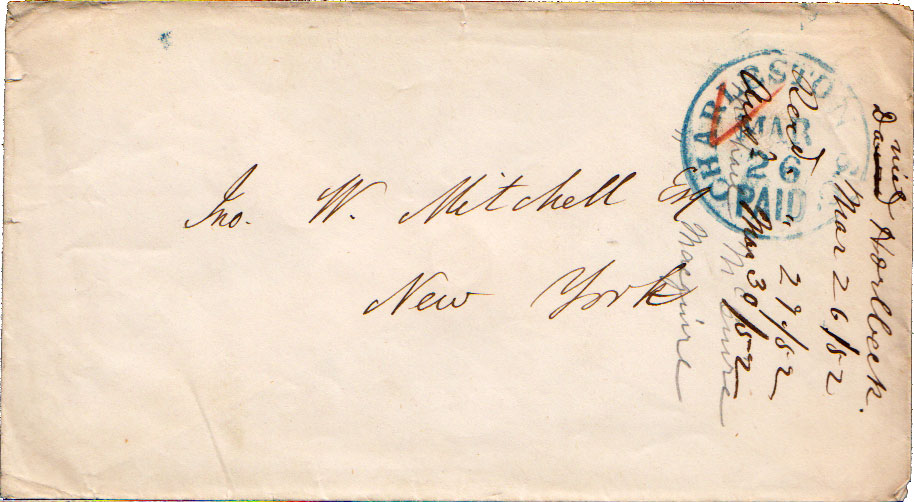 Jno. W. Mitchell Esq
New York
CHARLESTON S
MAR
26
PAID
Daniel Horlbeck.
Mar 26/52
Recd. " 29/52
Ansd " Mar 30/52
Macguire